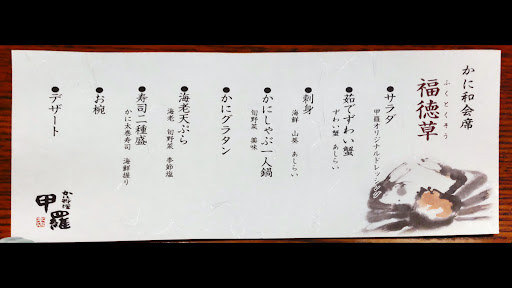 かに和会席
ふくとくそう
福徳草
●サラダ
甲羅オリジナルドレッシング
●茹でずわい蟹
ずわい蟹 あしらい
●刺身
海鮮 山葵 あしらい
●かにしゃぶ一人鍋
旬野菜 薬味
●かにグラタン
●海老天ぷら
海老 旬野菜 季節塩
●寿司二種盛
かに太巻寿司 海鮮握り
●お椀
●デザート
かに料理
甲羅